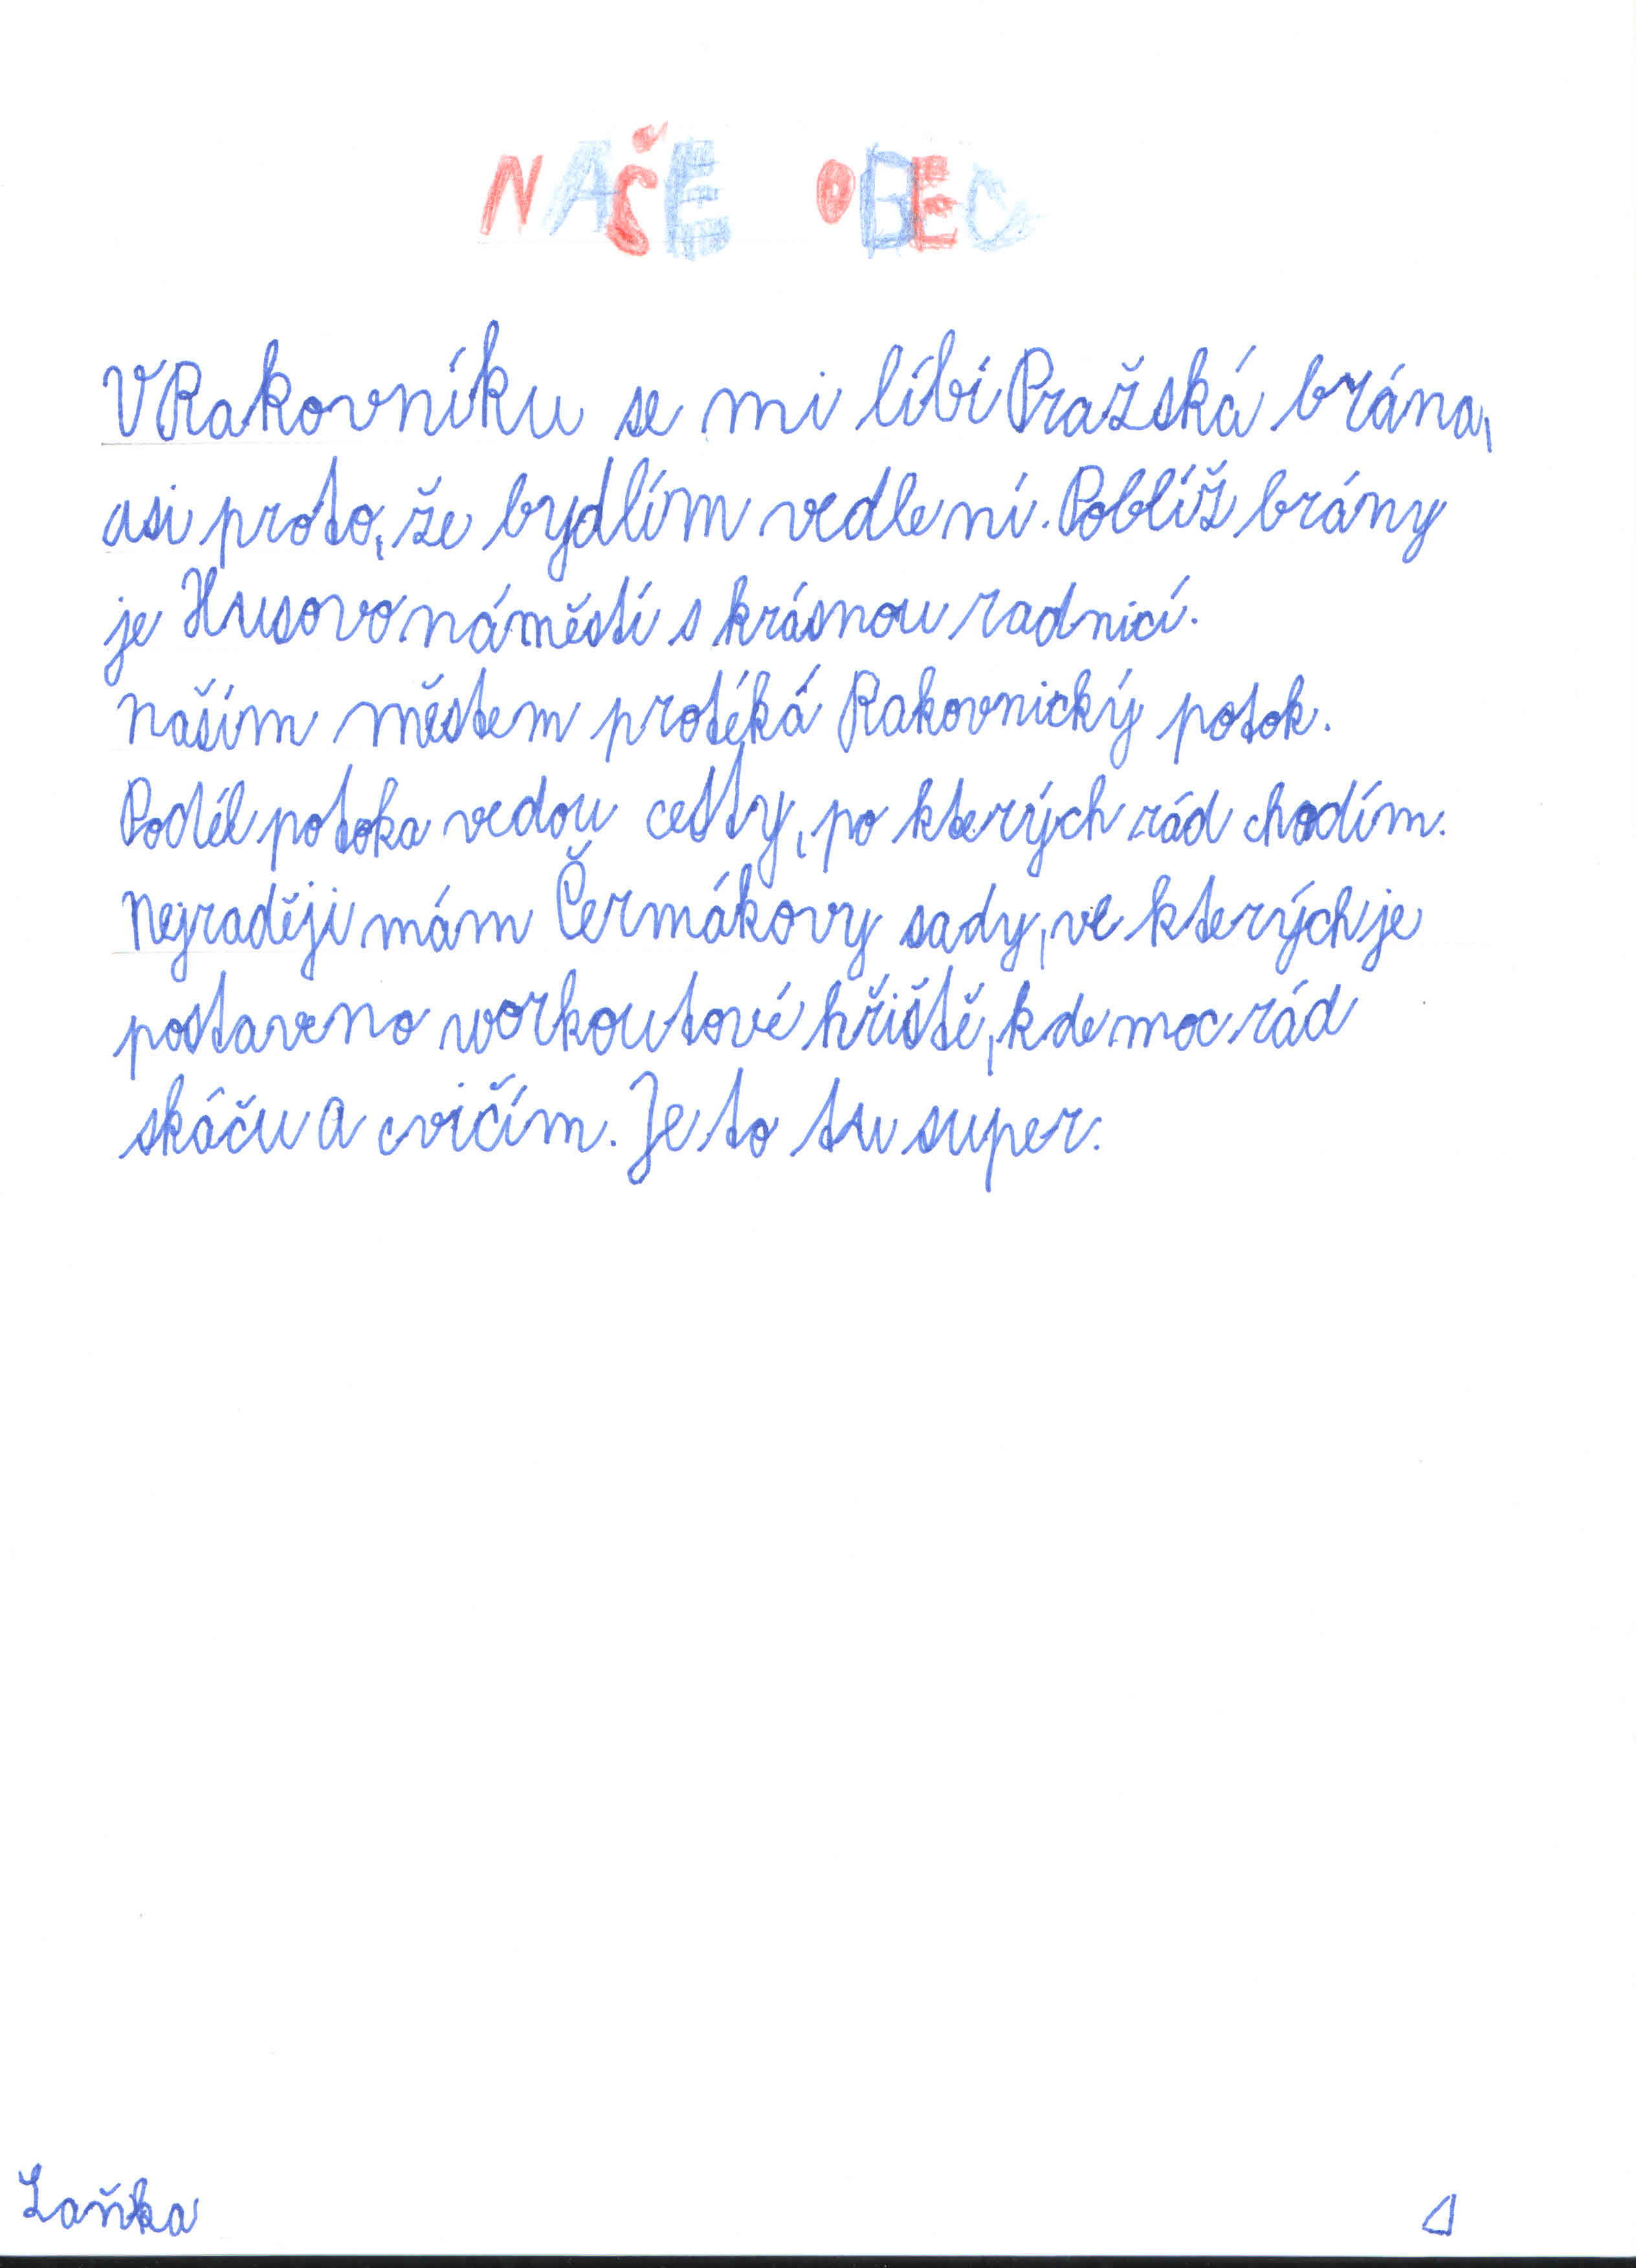 NAŠE OBEC
V Rakovníku se mi líbí Pražská brána,
asi proto, že bydlím vedle ní. Poblíž brány
je Husovo náměstí s krásnou radnicí.
Naším městem protéká Rakovnický potok.
Podél potoka vedou cesty, po kterých rád chodím.
Nejraději mám Čermákovy sady, ve kterých je
postaveno workoutové hřiště, kde moc rád
skáču a cvičím. Je to tu super.